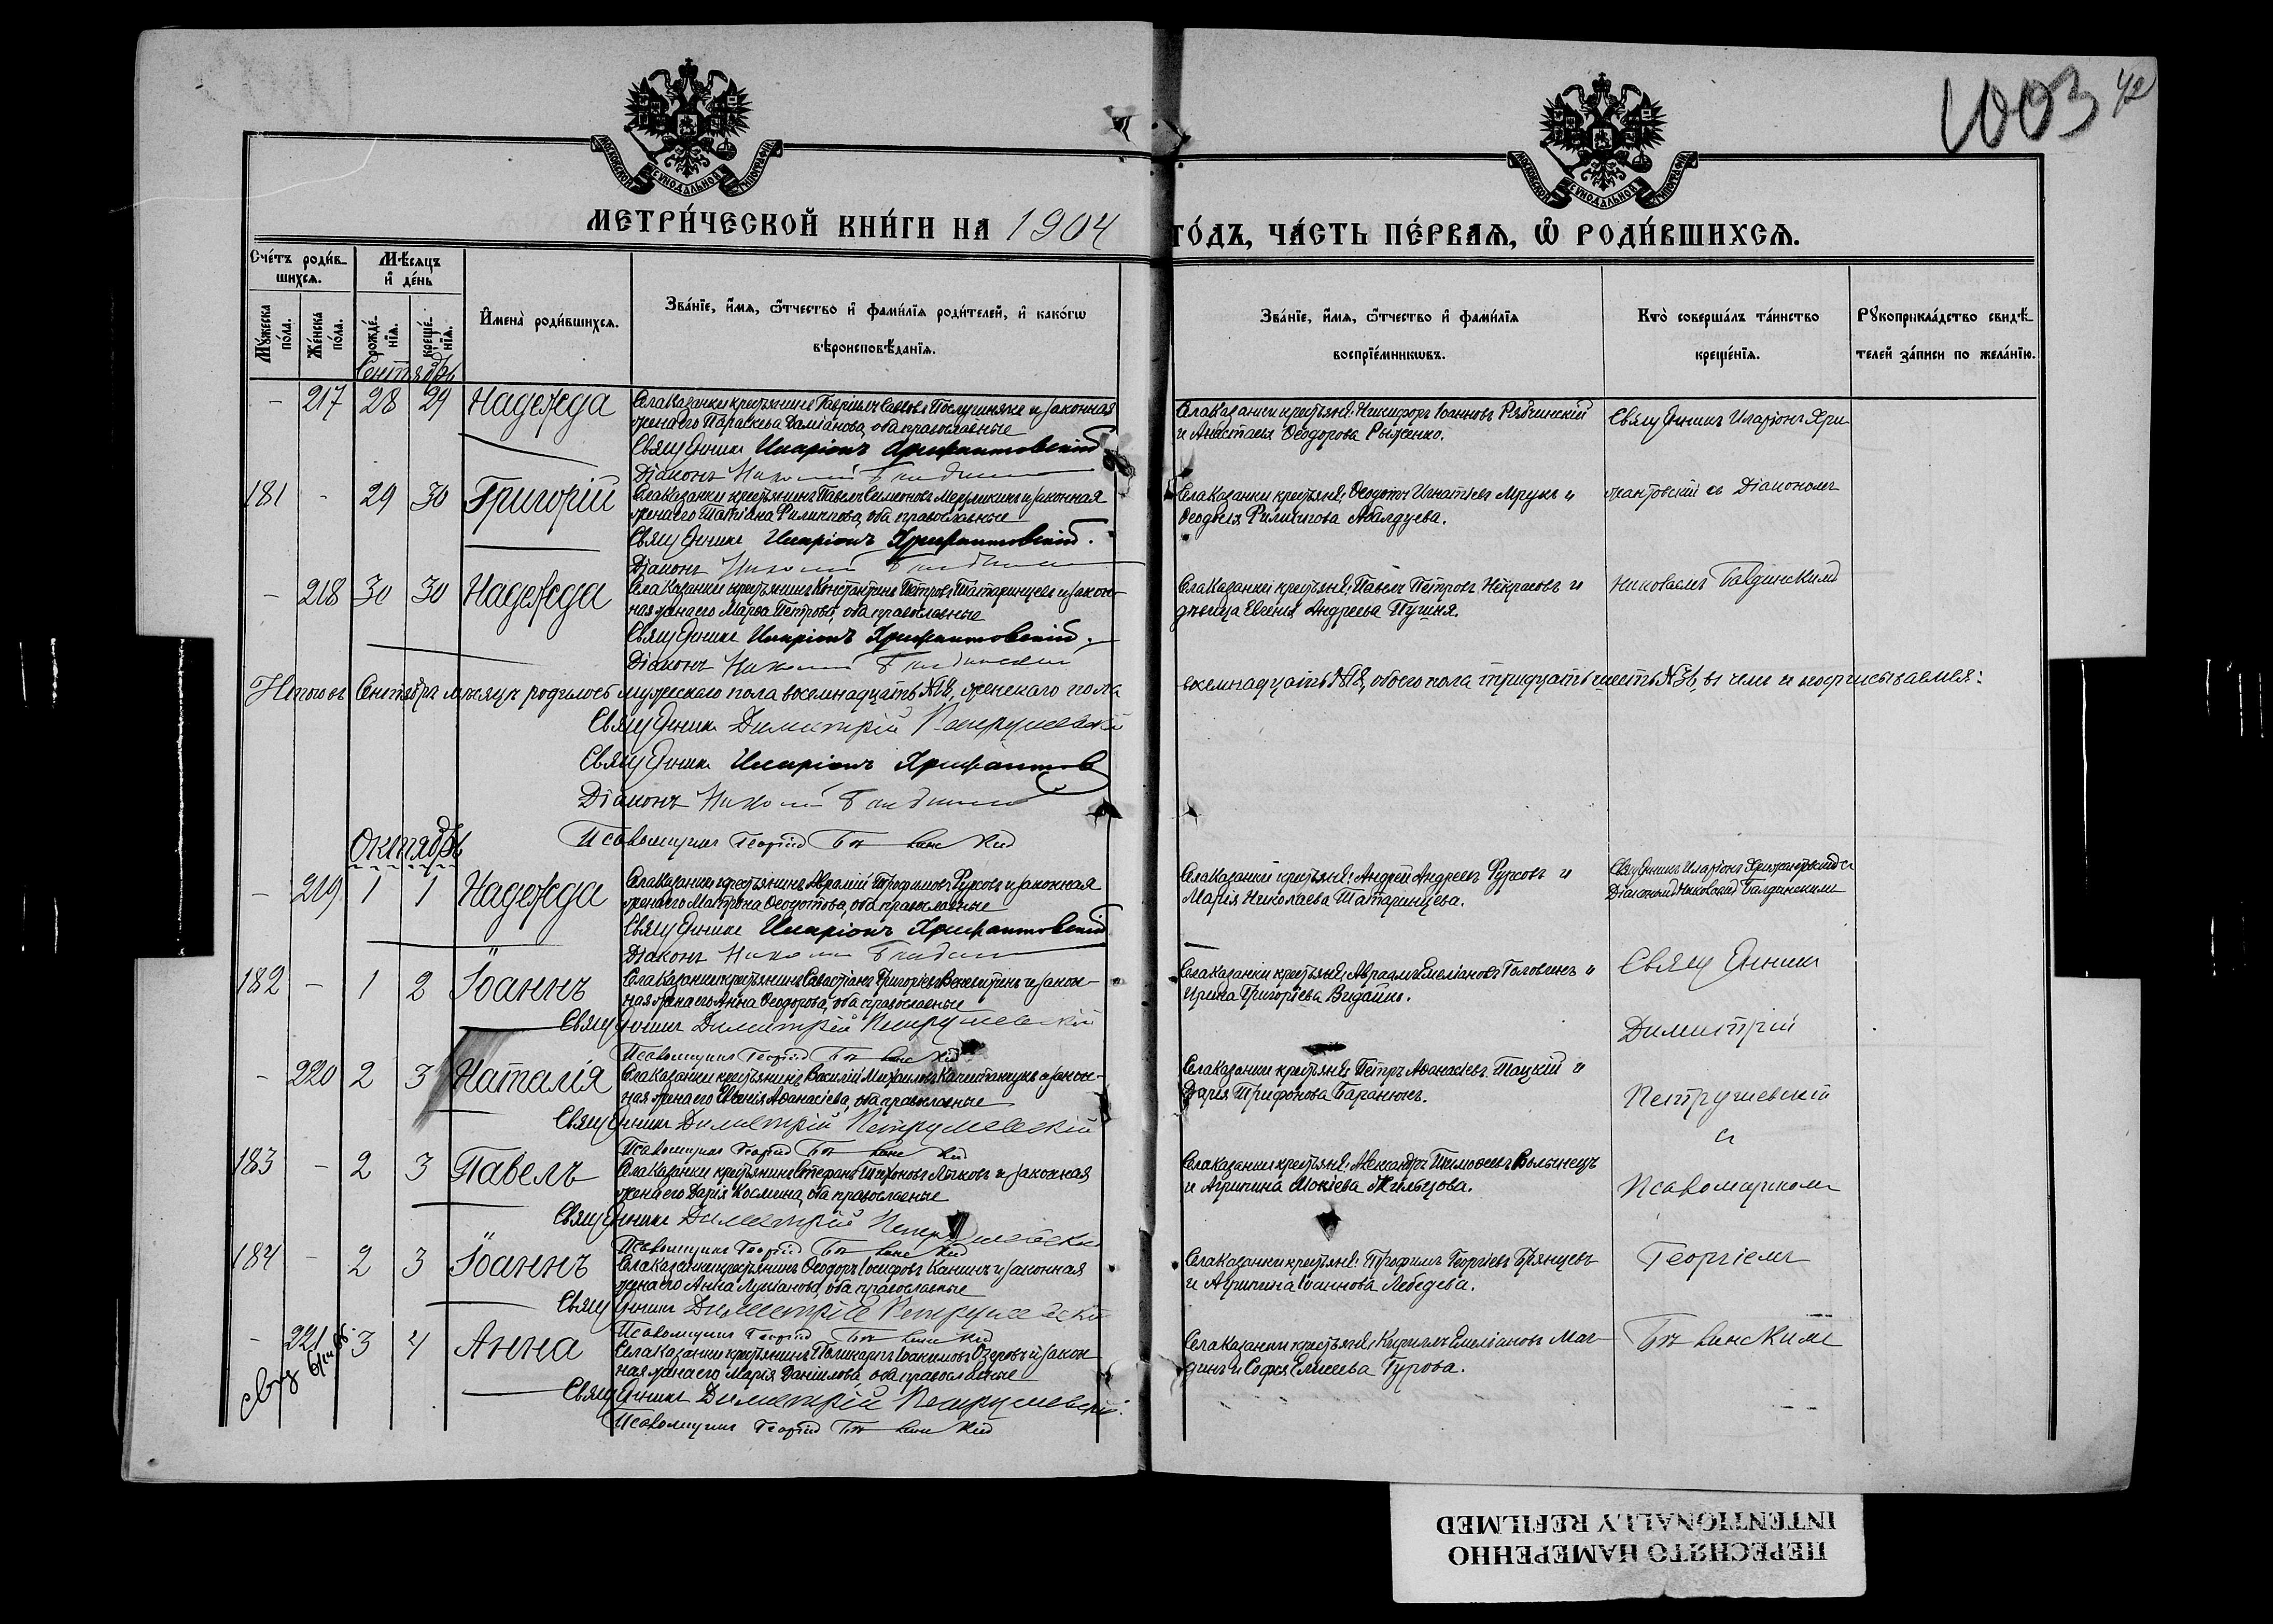 1003 42
МОСКОВСКОЙ СѴНОДАЛЬНОЙ ТИПОГРАФІИ
МОСКОВСКОЙ СѴНОДАЛЬНОЙ ТИПОГРАФІИ
МЕТРИ́ЧЕСКОЙ КНИ́ГИ НА 1904
ГО́ДЪ, ЧА́СТЬ ПЕ́РВАѦ, Ѡ҆ РОДИ́ВШИХСѦ.
Сче́тъ роди́в-
шихсѧ.
Мѣ́сѧцъ
и҆ де́нь
Мꙋ́жеска
по́ла.
Же́нска
по́ла.
рожде́-
нїѧ.
креще́-
нїѧ.
И҆мена̀ роди́вшихсѧ.
Зва́нїе, и҆́мѧ, ѻ҆́тчество и҆ фами́лїѧ роди́телей, и҆ како́гѡ
вѣроисповѣ́данїѧ.
Зва́нїе, и҆́мѧ, ѻ҆́тчество и҆ фами́лїѧ
воспрїе́мникѡвъ.
Кто̀ соверша́лъ та́инство
креще́нїѧ.
Рꙋкоприкла́дство свидѣ́-
телей за́писи по жела́нїю.
Сентябрь
- 217 28 29 Надежда
Села Казанки крестьянинъ Гавріилъ Саввовъ и законная
жена его Параскева Даміанова, оба православные
Священникъ Иларіонъ Хрисантовскій
Діаконъ Николай
Села Казанки крестьяне: Никифоръ Іоанновъ Рябчинскій
и Анастасія Ѳеодорова Рыженко.
Священникъ Иларіонъ Хри-
181 - 29 30 Григорій
Села Казанки крестьянинъ Павелъ Симеоновъ и законная
жена его Татіана Филиппова, оба православные
Священникъ Иларіонъ Хрисантовскій.
Діаконъ Николай
Села Казанки крестьяне: Ѳеодотъ Игнатіевъ Мрукъ и
Ѳеодосія Филиппова Абалдуева.
сантовскій съ Діакономъ
- 218 30 30 Надежда
Села Казанки крестьянинъ Константинъ Петровъ Татаринцевъ и закон-
ная жена его Марѳа Петрова, оба православные
Священникъ Иларіонъ Хрисантовскій.
Діаконъ Николай
Села Казанки крестьяне: Павелъ Петровъ Некрасовъ и
дѣвица Евгенія Андреева Пушня.
Николаемъ
Итого въ Сентябрѣ мѣсяцѣ родилось мужескаго пола восемнадцать №18, женскаго пола
восемнадцать №18, обоего пола тридцать шесть №36, въ чемъ и подписываемся:
Священникъ Димитрій Петрушевскій
Священникъ Иларіонъ Хрисантов
Діаконъ Николай
Псаломщикъ Георгій
Октябрь
- 219 1 1 Надежда
Села Казанки крестьянинъ Аврамій Трофимовъ Рурсовъ и законная
жена его Матрона Ѳеодотова, оба православные
Священникъ Иларіонъ Хрисантовскій
Діаконъ Николай
Села Казанки крестьяне: Андрей Андреевъ Рурсовъ и
Марія Николаева Татаринцева.
Священникъ Иларіонъ Хрисантовскій съ
Діакономъ Николаемъ
182 - 1 2 Іоаннъ
Села Казанки крестьянинъ Савастіанъ Григорьевъ и закон-
ная жена его Анна Ѳеодорова, оба православные
Священникъ Димитрій Петрушевскій
Псаломщикъ Георгій
Села Казанки крестьяне: Авраамъ Емеліановъ Головинъ и
Ирина Григоріева
Священникъ
Димитрій
- 220 2 3 Наталія
Села Казанки крестьянинъ Василій Михаиловъ и закон-
ная жена его Евгенія Аѳанасіева, оба православные
Священникъ Димитрій Петрушевскій
Псаломщикъ Георгій
Села Казанки крестьяне: Петръ Аѳанасіевъ Тацкій и
Дарія Трифонова Баранюкъ.
Петрушевскій
съ
183 - 2 3 Павелъ
Села Казанки крестьянинъ Стефанъ Тихоновъ Лысковъ и законная
жена его Дарія Косьмина, оба православные
Священникъ Димитрій Петрушевскій
Псаломщикъ Георгій
Села Казанки крестьяне: Александръ Тимоѳеевъ Волынецъ
и Агрипина Мокіева Жильцова.
Псаломщикомъ
184 - 2 3 Іоаннъ
Села Казанки крестьянинъ Ѳеодоръ Іосифовъ Канинъ и законная
жена его Анна Лукіанова, оба православные
Священникъ Димитрій Петрушевскій
Псаломщикъ Георгій
Села Казанки крестьяне: Трофимъ Георгіевъ Брянцевъ
и Агрипина Іоаннова Лебедева.
Георгіемъ
- 221 3 4 Анна
Села Казанки крестьянинъ Поликарпъ Іоакимовъ Озеровъ и закон-
ная жена его Марія Даніилова, оба православные
Священникъ Димитрій Петрушевскій.
Псаломщикъ Георгій
Села Казанки крестьяне: Кириллъ Емеліановъ
и Софія Елисеева Гурова.
ПЕРЕСНЯТО НАМЕРЕННО
INTENTIONALLY REFILMED